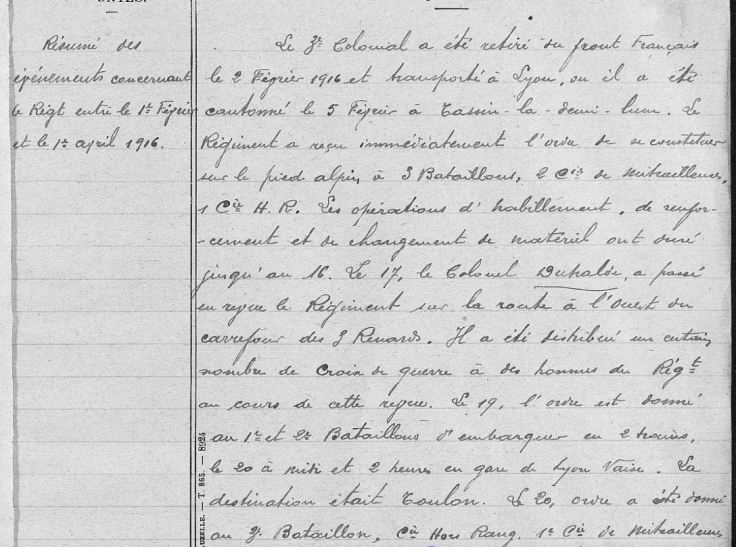 DATES.
Résumé des
événements concernant
le Régt entre le 1er Février
et le 1er april 1916.
Le 3e Colonial a été retiré du front Français
le 2 Février 1916 et transporté à Lyon, ou il a été
cantonné le 5 Février à Tassin-la-demi-lune. Le
Régiment a reçu immédiatement l'ordre de se constituer
sur le pied alpin à 3 Bataillons, 2 Cies de Mitrailleuses,
1 Cie H. R. Les opérations d'habillement, de renfor-
-cement et de changement de matériel ont duré
jusqu'au 16. Le 17, le Colonel Duhalde, a passé
en revue le Régiment sur la route à l'Ouest du
carrefour des 3 Renards. Il a été distribué un certain
nombre de Croix de guerre à des hommes du Régt
au cours de cette revue. Le 19, l'ordre est donné
au 1er et 2e Bataillons d'embarquer en 2 trains,
le 20 à midi et 2 heures en gare de Lyon Vaise. La
destination était Toulon. Le 20, ordre a été donné
au 3e Bataillon, Cie Hors Rang, 1e Cie de Mitrailleuses
— T 865. — 8924